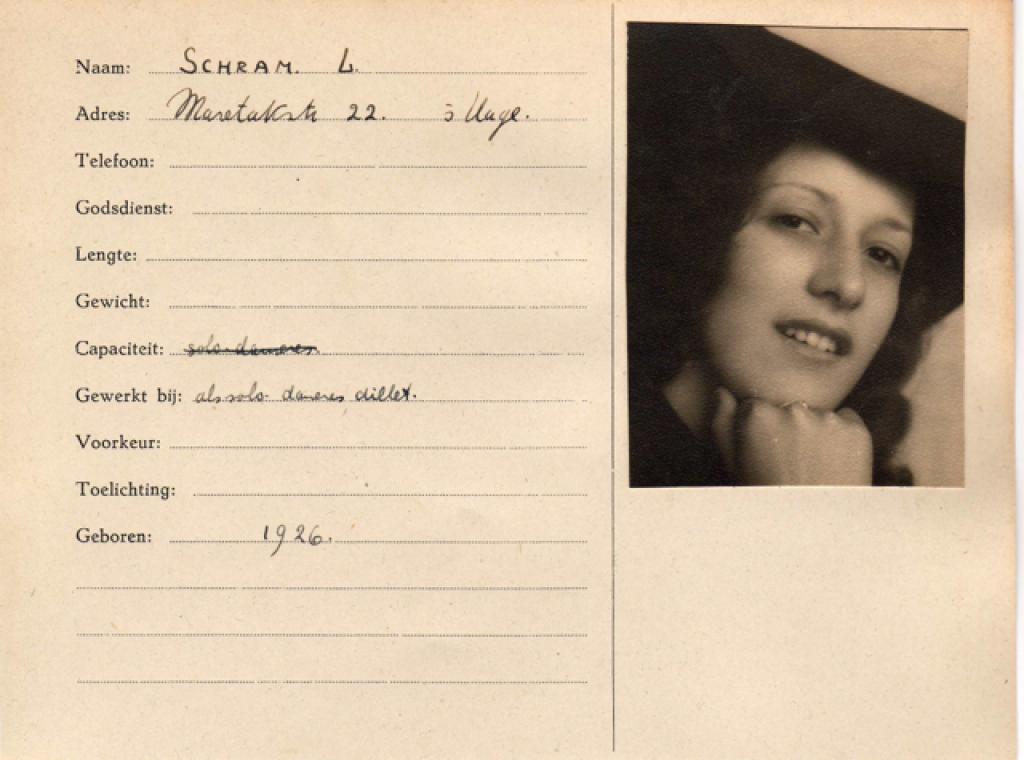 Naam: SCHRAM. L.
Adres: Maretakstr 22. 's Hage.
Telefoon:
Godsdienst:
Lengte:
Gewicht:
Capaciteit: solo-danseres
Gewerkt bij: als solo-danseres dillet.
Voorkeur:
Toelichting:
Geboren: 1926.